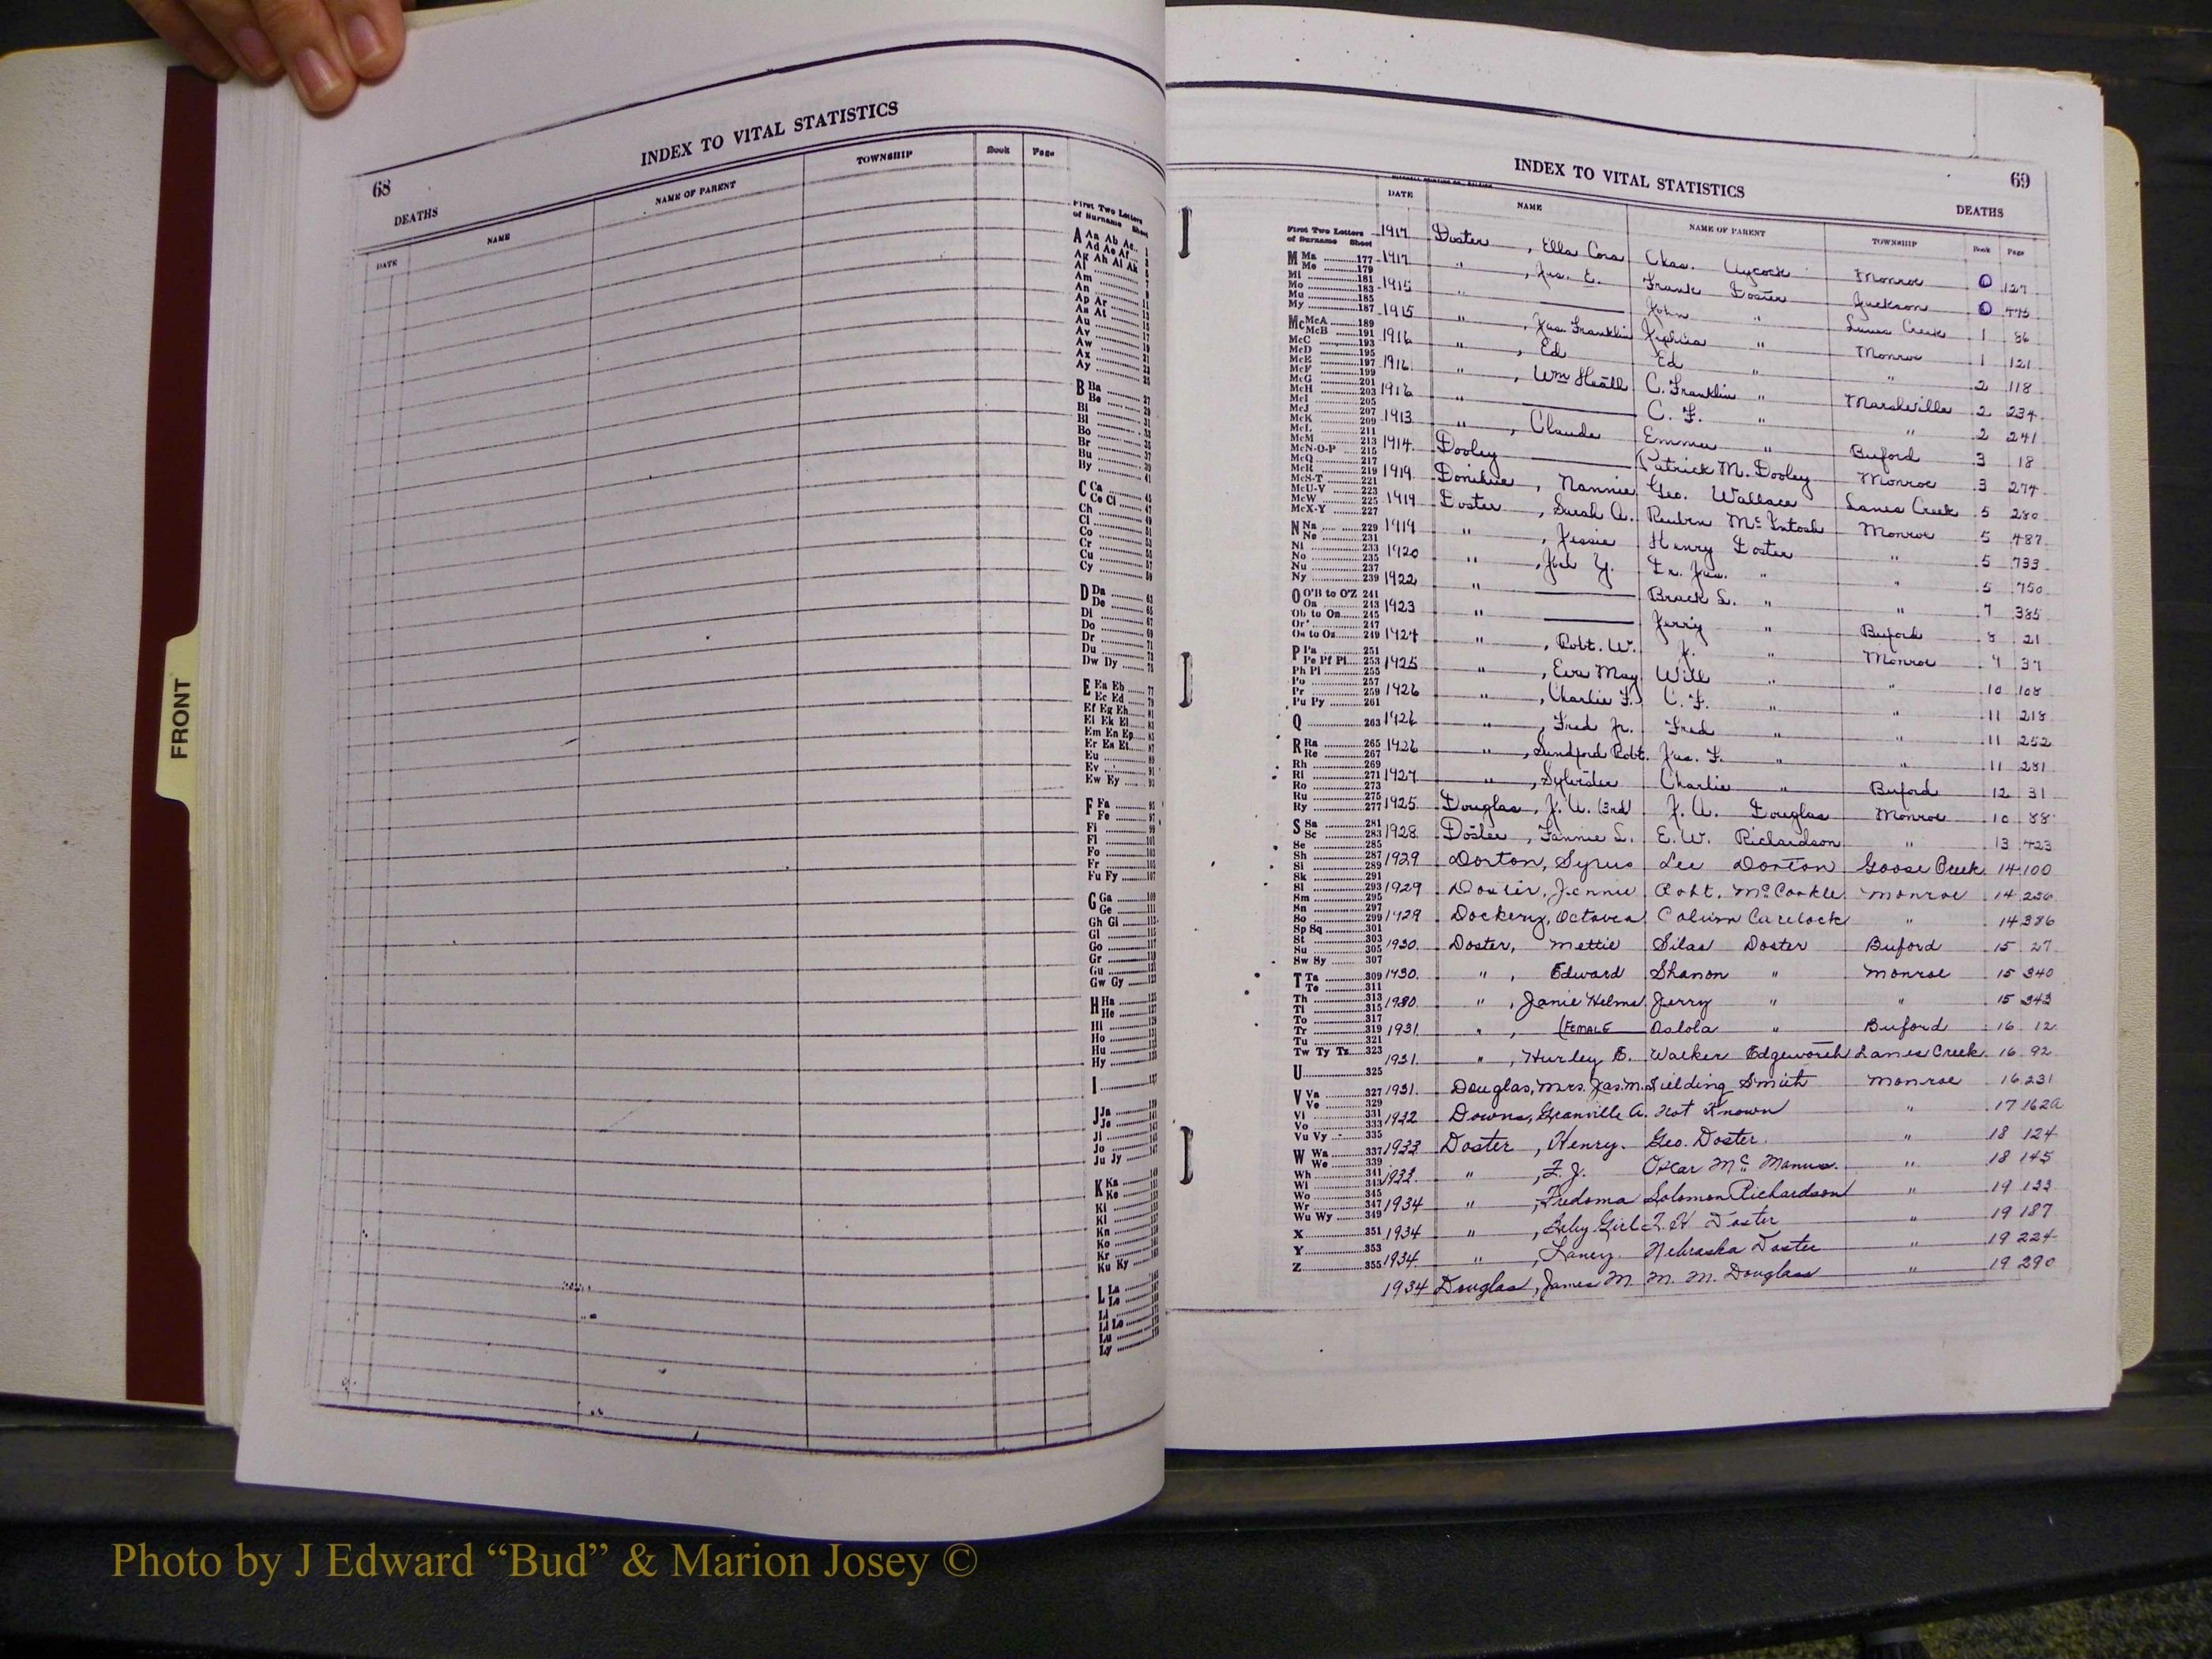 68
INDEX TO VITAL STATISTICS
DEATHS
DATE NAME NAME OF PARENT TOWNSHIP Book Page
First Two Letters
of Surname Sheet
A Aa Ab Ac
Ad Ae Af
Ag Ah Ai Ak
Al
Am
An
Ap Ar
As At
Au
Av
Aw
Ax
Ay
B Ba
Be
Bi
Bl
Bo
Br
Bu
By
C Ca
Ce Ci
Ch
Cl
Co
Cr
Cu
Cy
D Da
De
Di
Do
Dr
Du
Dw Dy
E Ea Eb
Ec Ed
Ef Eg Eh
Ei Ek El
Em En Ep
Er Es Et
Eu
Ev
Ew Ey
F Fa
Fe
Fi
Fl
Fo
Fr
Fu Fy
G Ga
Ge
Gh Gi
Gl
Go
Gr
Gu
Gw Gy
H Ha
He
Hi
Ho
Hu
Hy
I
J Ja
Je
Ji
Jo
Ju Jy
K Ka
Ke
Ki
Kl
Kn
Ko
Kr
Ku Ky
L La
Le
Li
Ll Lo
Lu
Ly
FRONT
INDEX TO VITAL STATISTICS
69
DEATHS
DATE NAME NAME OF PARENT TOWNSHIP Book Page
First Two Letters
of Surname Sheet
M Ma 177
Me 179
Mi 181
Mo 183
Mu 185
My 187
Mc McA 189
McB 191
McC 193
McD 195
McE 197
McF 199
McG 201
McH 203
McI 205
McJ 207
McK 209
McL 211
McM 213
McN-O-P 215
McQ 217
McR 219
McS-T 221
McU-V 223
McW 225
McX-Y 227
N Na 229
Ne 231
Ni 233
No 235
Nu 237
Ny 239
O O'B to O'Z 241
Oa 243
Ob to On 245
Or 247
Os to Oz 249
P Pa 251
Pe Pf Pi 253
Ph Pl 255
Po 257
Pr 259
Pu Py 261
Q 263
R Ra 265
Re 267
Rh 269
Ri 271
Ro 273
Ru 275
Ry 277
S Sa 281
Sc 283
Se 285
Sh 287
Si 289
Sk 291
Sl 293
Sm 295
Sn 297
So 299
Sp Sq 301
St 303
Su 305
Sw Sy 307
T Ta 309
Te 311
Th 313
Ti 315
To 317
Tr 319
Tu 321
Tw Ty Tz 323
U 325
V Va 327
Ve 329
Vi 331
Vo 333
Vu Vy 335
W Wa 337
We 339
Wh 341
Wi 343
Wo 345
Wr 347
Wu Wy 349
X 351
Y 353
Z 355
1917 Doster, Ella Cora Chas. Aycock Monroe 0 127
1917 " , Jas. E. Frank Doster Jackson 0 445
1915 " John " Lanes Creek 1 86
1915 " , Jas. Franklin " Monroe 1 121
1916 " , Ed Ed " " 2 118
1916 " , Wm Heath C. Franklin " Marshville 2 234
1916 " C. F. " " 2 241
1913 " , Claude Emma " Buford 3 18
1914 Dooley Patrick M. Dooley Monroe 3 274
1919 , Nannie Geo. Wallace Lanes Creek 5 280
1919 Doster, Sarah A. Reuben McIntosh Monroe 5 487
1919 " , Jessie Henry Doster " 5 733
1920 " Dr. Jas. " " 5 750
1922 " Brack L. " " 7 385
1923 " Jerry " Buford 8 21
1924 " , Robt. W. J. " Monroe 9 37
1925 " , Eva May Will " " 10 108
1926 " , Charlie F. C. F. " " 11 218
1926 " , Fred Jr. Fred " " 11 252
1926 " , Sandford Robt. Jas. F. " " 11 281
1927 " , Sylvester Charlie " Buford 12 31
1925 Douglas, J. A. (3rd) J. A. Douglas Monroe 10 88
1928 Doster, Fannie L. E. W. Richardson " 13 423
1929 Dorton, Syrus Lee Dorton Goose Creek 14 100
1929 Doster, Jennie Robt. McCorkle Monroe 14 236
1929 Dockery, Octavea Calvin Curelock " 14 386
1930 Doster, Mettie Silas Doster Buford 15 27
1930 " , Edward Shanon " Monroe 15 340
1930 " , Janie Helms Jerry " " 15 343
1931 " , (FEMALE Oslola " Buford 16 12
1931 " , Hurley B. Walker Edgeworth Lanes Creek 16 92
1931 Douglas, Mrs. Jas. M. Fielding Smith Monroe 16 231
1932 Downs, Granville A. Not Known " 17 162a
1933 Doster, Henry. Geo. Doster. " 18 124
1932 " , F. J. Oscar McManus. " 18 145
1934 " , Fredonia Solomon Richardson " 19 133
1934 " , Baby Girl Doster " 19 187
1934 " , Laney. Nebraska Doster " 19 224
1934 Douglas, James M M. M. Douglass " 19 290
Photo by J Edward “Bud” & Marion Josey ©